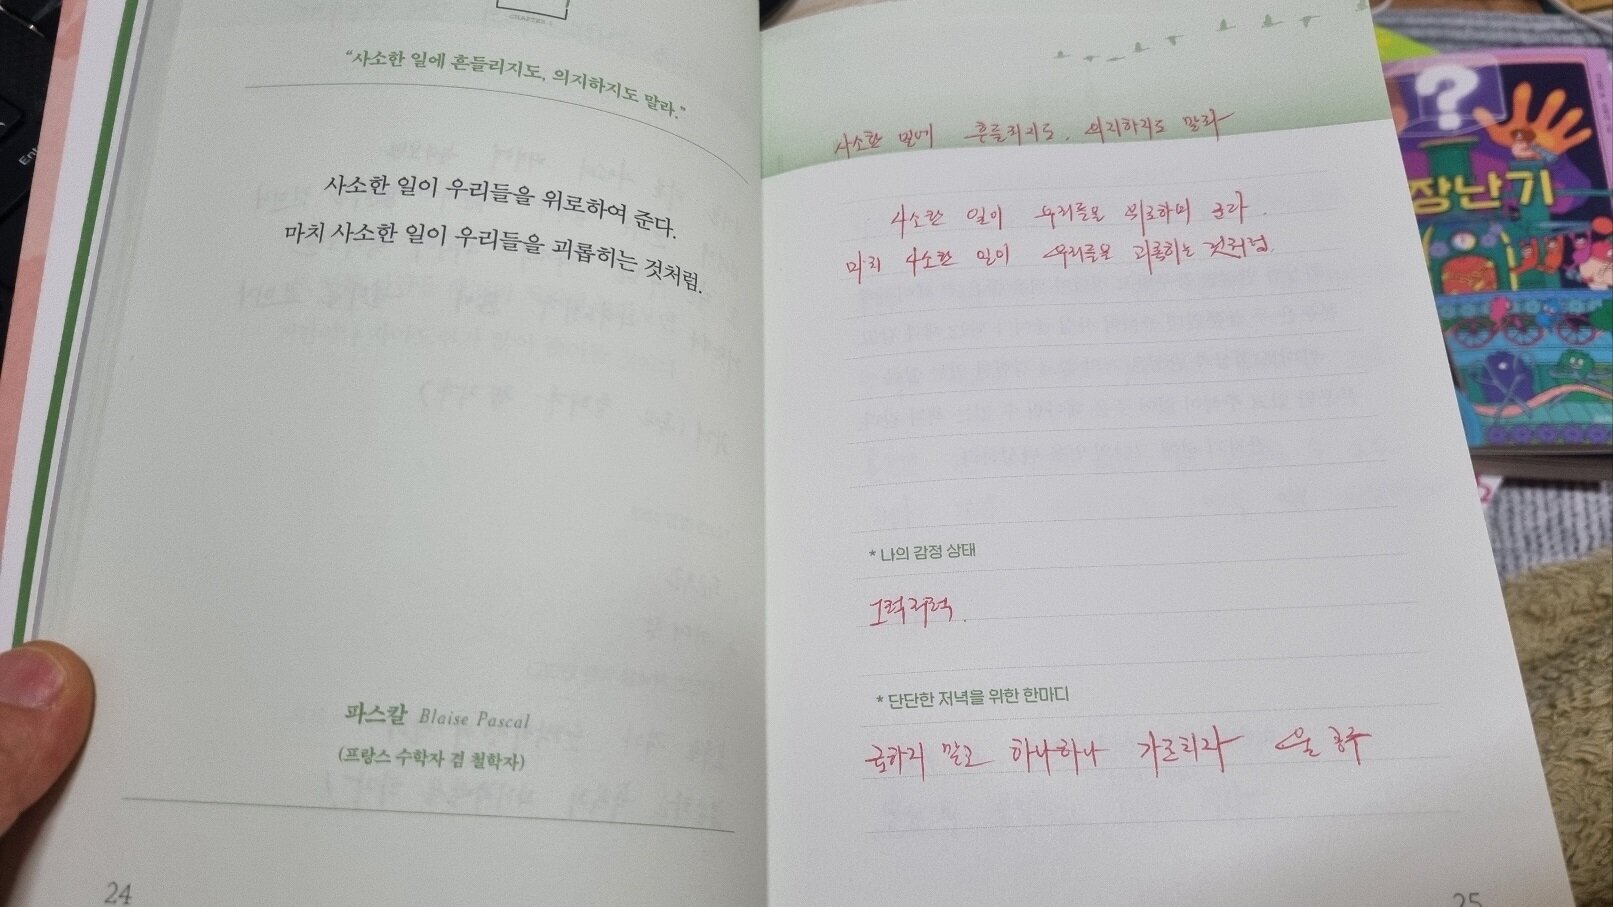 CHAPTER 1
"사소한 일에 흔들리지도, 의지하지도 말라."
사소한 일이 우리들을 위로하여 준다.
마치 사소한 일이 우리들을 괴롭히는 것처럼.
파스칼 Blaise Pascal
(프랑스 수학자 겸 철학자)
24
사소한 일에 흔들리지도, 의지하지도 말라
사소한 일이 우리들을 위로하며 준다.
마치 사소한 일이 우리들을 괴롭히는 것처럼.
* 나의 감정 상태
그럭저럭.
* 단단한 저녁을 위한 한마디
급하지 말고 하나하나 가르치자 울 공주
25
?
장난기
Ent